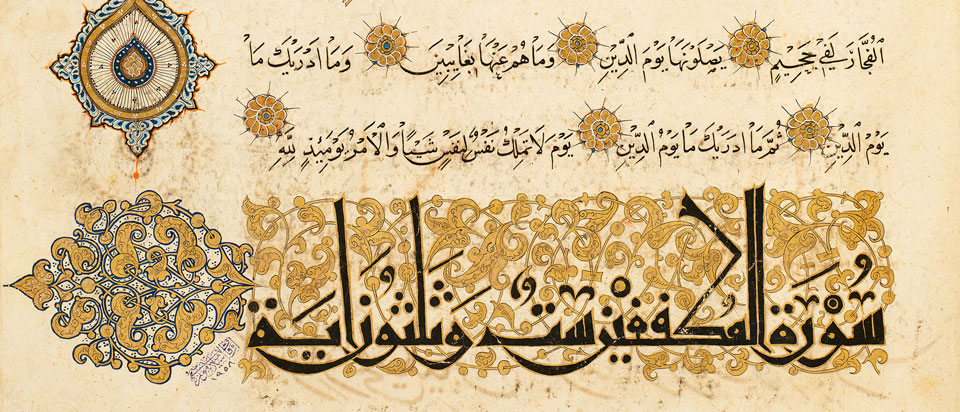 ٱلْفُجَّارَ لَفِي جَحِيمٍ يَصْلَوْنَهَا يَوْمَ ٱلدِّينِ وَمَا هُمْ عَنْهَا بِغَايِبِينَ وَمَا أَدْرَىٰكَ مَا
يَوْمُ ٱلدِّينِ ثُمَّ مَا أَدْرَىٰكَ مَا يَوْمُ ٱلدِّينِ يَوْمَ لَا تَمْلِكُ نَفْسٌ لِنَفْسٍ شَيْـًٔا وَٱلْأَمْرُ يَوْمَئِذٍ لِلَّهِ
سُورَةُ المطففين ست وثلثون اية